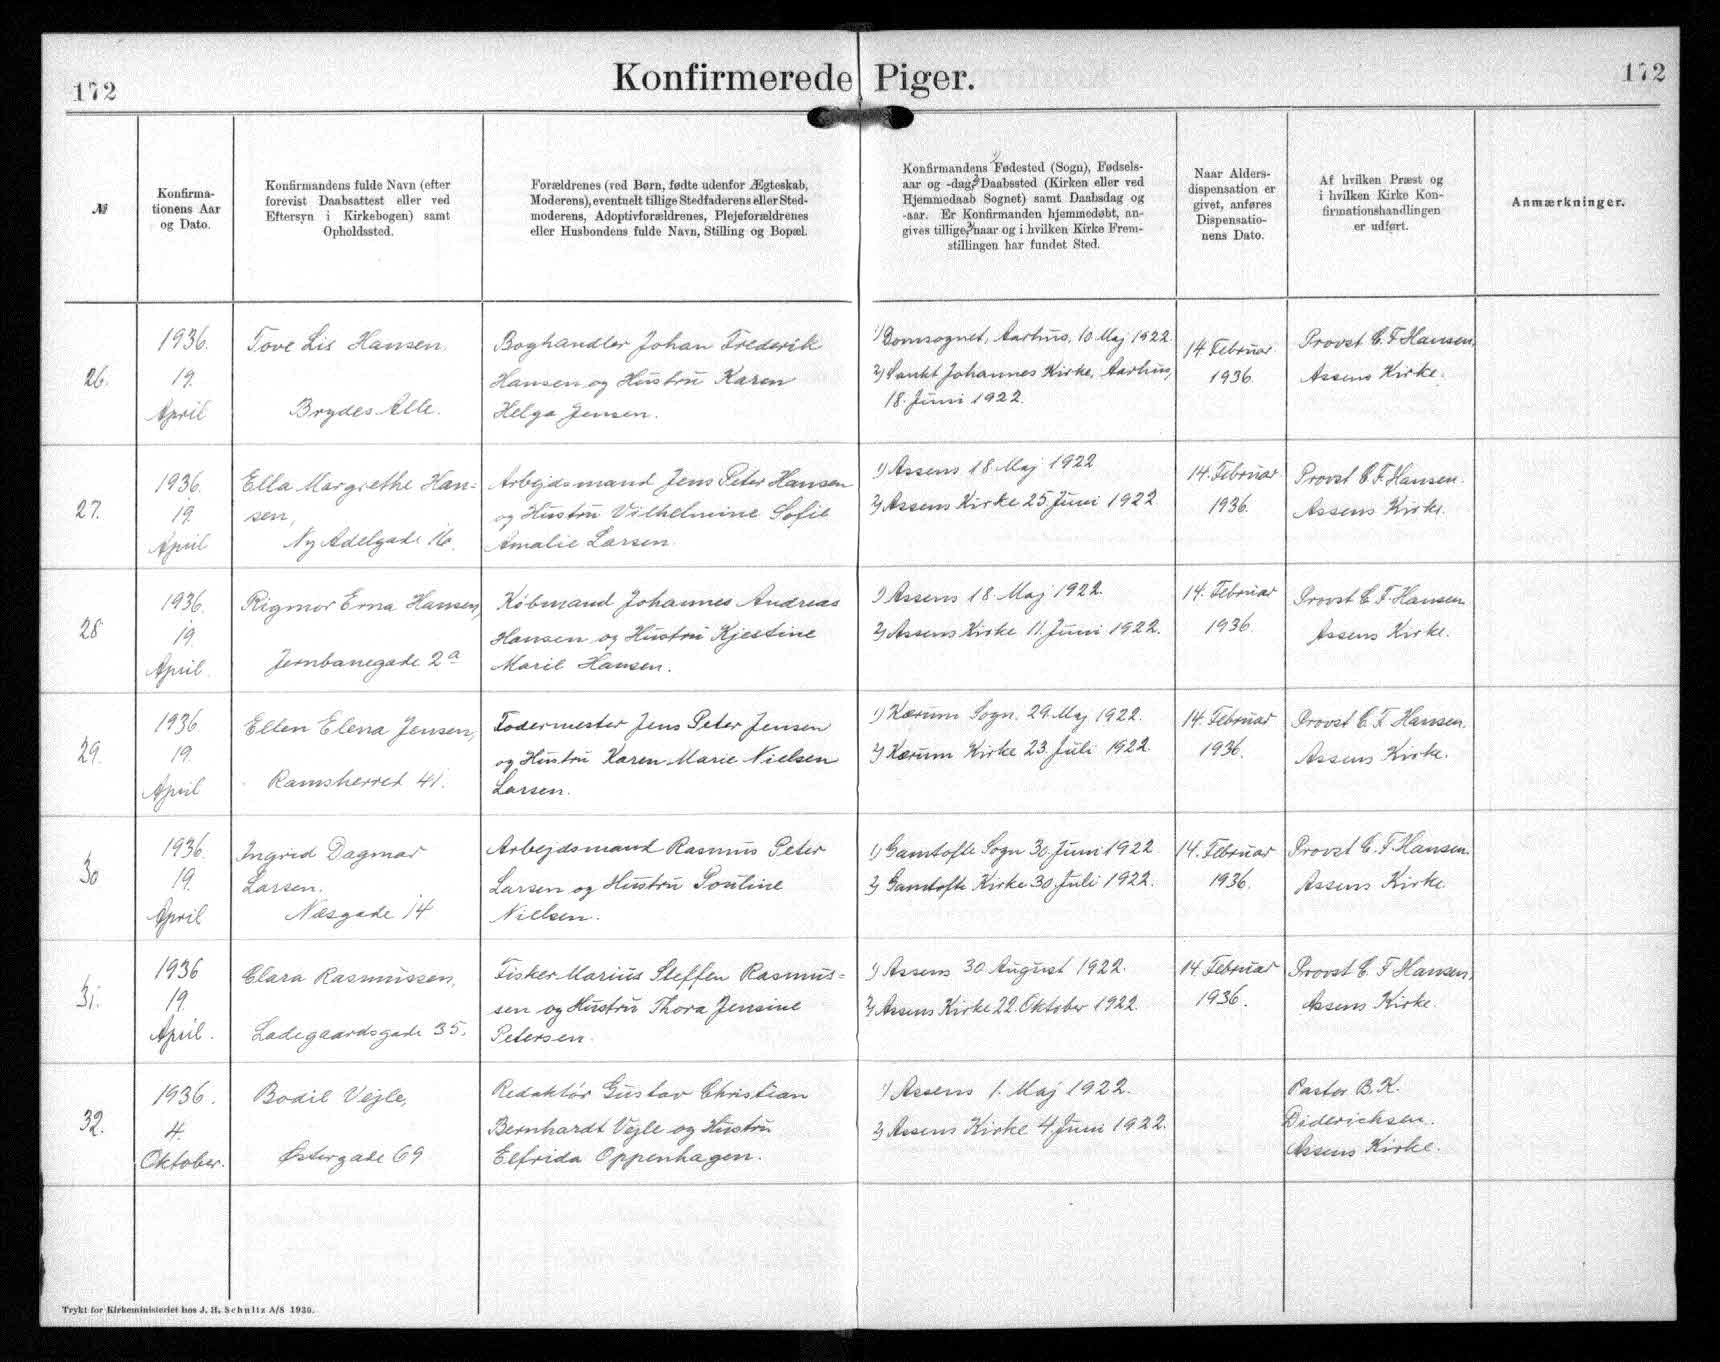 172
Konfirmerede Piger.
172
№
Konfirma-
tionens Aar
og Dato.
Konfirmandens fulde Navn (efter
forevist Daabsattest eller ved
Eftersyn i Kirkebogen) samt
Opholdssted.
Forældrenes (ved Børn, fødte udenfor Ægteskab,
Moderens), eventuelt tillige Stedfaderens eller Sted-
moderens, Adoptivforældrenes, Plejeforældrenes
eller Husbondens fulde Navn, Stilling og Bopæl.
Konfirmandens 1) Fødested (Sogn), Fødsels-
aar og -dag, 2) Daabssted (Kirken eller ved
Hjemmedaab Sognet) samt Daabsdag og
-aar. Er Konfirmanden hjemmedøbt, an-
gives tillige, 3) naar og i hvilken Kirke Frem-
stillingen har fundet Sted.
Naar Alders-
dispensation er
givet, anføres
Dispensatio-
nens Dato.
Af hvilken Præst og
i hvilken Kirke Kon-
firmationshandlingen
er udført.
Anmærkninger.
26.
1936.
19.
April
Tove Lis Hansen,
Brydes Alle.
Boghandler Johan Frederik
Hansen og Hustru Karen
Helga Jensen.
1) Domsognet, Aarhus, 10 Maj 1922
2) Sankt Johannes Kirke, Aarhus,
18. Juni 1922.
14 Februar
1936
Provst C. F. Hansen,
Assens Kirke.
27.
1936.
19.
April
Ella Margrethe Han-
sen,
Ny Adelgade 16.
Arbejdsmand Jens Peter Hansen
og Hustru Vilhelmine Sofie
Amalie Larsen.
1) Assens 18. Maj 1922
2) Assens Kirke 25. Juni 1922
14. Februar
1936.
Provst C. F. Hansen.
Assens Kirke.
28
1936.
19
April.
Rigmor Erna Hansen,
Jernbanegade 2a
Købmand Johannes Andreas
Hansen og Hustru Kjestine
Marie Hansen.
1) Assens 18. Maj 1922.
2) Assens Kirke 11. Juni 1922.
14. Februar
1936.
Provst C. F. Hansen
Assens Kirke.
29.
1936
19.
April
Ellen Elena Jensen,
Ramsherred 41.
Fodermester Jens Peter Jensen
og Hustru Karen Marie Nielsen
Larsen.
1) Kærum Sogn. 29. Maj 1922.
2) Kærum Kirke 23. Juli 1922.
14. Februar
1936.
Provst C. F. Hansen.
Assens Kirke.
30
1936.
19.
April
Ingrid Dagmar
Larsen.
Næsgade 14
Arbejdsmand Rasmus Peter
Larsen og Hustru Pouline
Nielsen.
1) Gamtofte Sogn 30. Juni 1922
2) Gamtofte Kirke 30. Juli 1922.
14. Februar
1936.
Provst C. F. Hansen.
Assens Kirke
31.
1936
19
April.
Clara Rasmussen,
Ladegaardsgade 35.
Fisker Marius Steffen Rasmus-
sen og Hustru Thora Jensine
Petersen.
1) Assens 30 August 1922.
2) Assens Kirke 22. Oktober 1922.
14 Februar
1936.
Provst C. F. Hansen,
Assens Kirke.
32.
1936.
4.
Oktober.
Bodil Vejle,
Østergade 69
Redaktør Gustav Christian
Bernhardt Vejle og Hustru
Elfrida Oppenhagen.
1) Assens 1. Maj 1922.
2) Assens Kirke 4. Juni 1922.
Pastor B. K.
Diderichsen.
Assens Kirke.
Trykt for Kirkeministeriet hos J. H. Schultz A/S 1930.